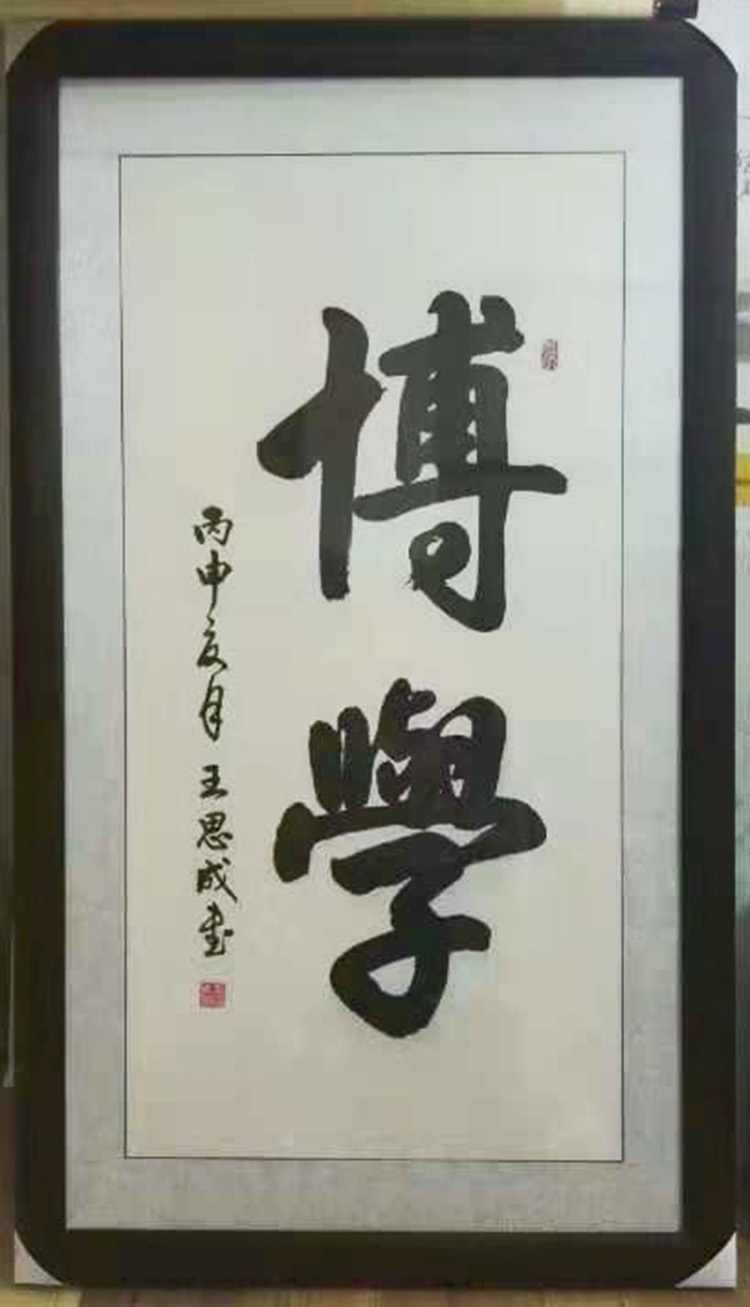 博學
丙申亥月王思成書